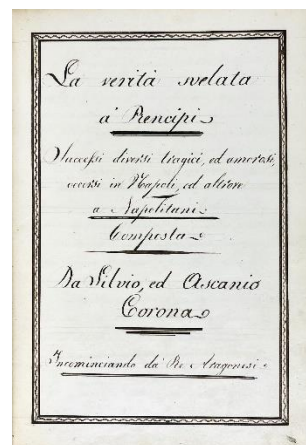 La verità svelata
à Prencipi
Successi diversi tragici, ed amorosi,
occorsi in Napoli, ed altrove
a Napolitani
Composta
Da Silvio, ed Ascanio
Corona
Incominciando da Re Aragonesi